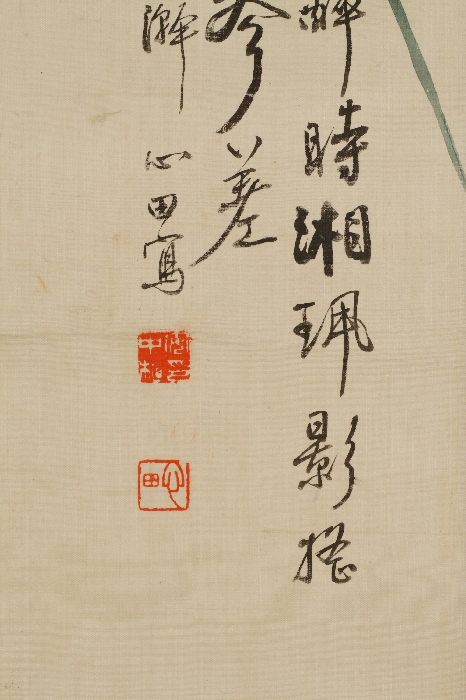 時湘珮影搖
參差
心田寫
心田